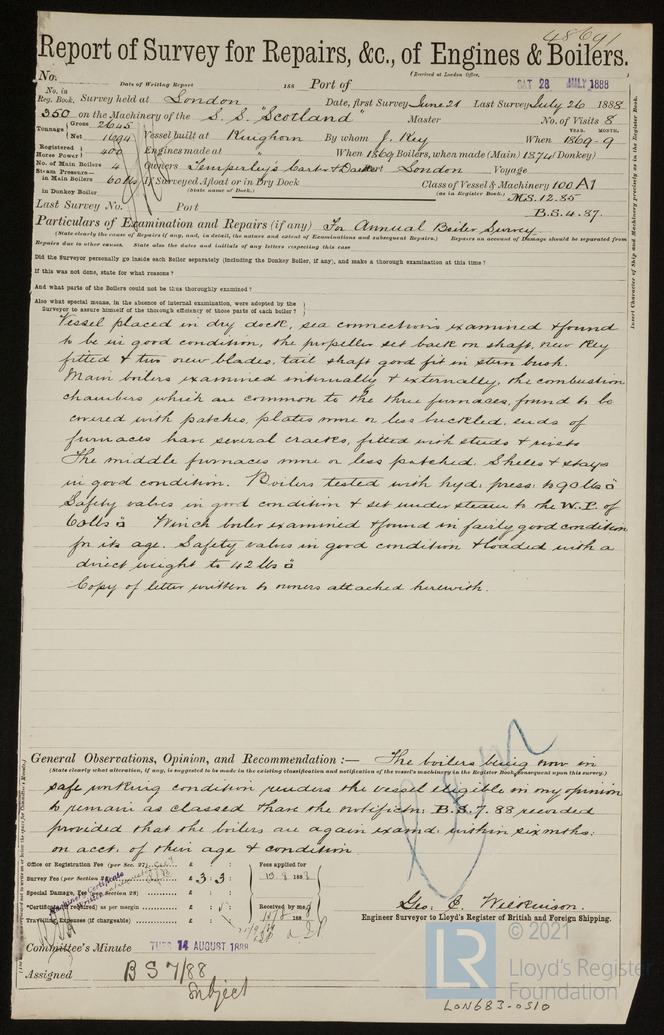 48691
Report of Survey for Repairs, &c., of Engines & Boilers.
(Received at London Office,
No.
Date of Writing Report 188 Port of SAT 28 JULY 1888
No. in Reg. Book. Survey held at London Date, first Survey June 21 Last Survey July 26 1888
350 on the Machinery of the S.S. "Scotland" Master No. of Visits 8
Tonnage Gross 2645 Net 1694 Vessel built at Kinghorn By whom J. Key When 1869-9
YEAR. MONTH.
Registered Horse Power 400 Engines made at " When 1869 Boilers, when made (Main) 1874 (Donkey)
No. of Main Boilers 4 Owners Temperley's Port London Voyage
Steam Pressure— in Main Boilers 60 lbs If Surveyed Afloat or in Dry Dock Class of Vessel & Machinery 100 A1
(State name of Dock.) (as in Register Book.) MS. 12. 85
in Donkey Boiler
Last Survey No. Port B.S. 4. 87.
Particulars of Examination and Repairs (if any) For Annual Boiler Survey
(State clearly the cause of Repairs if any, and, in detail, the nature and extent of Examinations and subsequent Repairs.) Repairs on account of Damage should be separated from
Repairs due to other causes. State also the dates and initials of any letters respecting this case
Did the Surveyor personally go inside each Boiler separately (including the Donkey Boiler, if any), and make a thorough examination at this time?
If this was not done, state for what reasons?
And what parts of the Boilers could not be thus thoroughly examined?
Also what special means, in the absence of internal examination, were adopted by the
Surveyor to assure himself of the thorough efficiency of those parts of each boiler?
Vessel placed in dry dock, sea connections examined & found
to be in good condition, the propeller set back on shaft, new key
fitted & two new blades, tail shaft good fit in stern bush.
Main boilers examined internally & externally, the combustion
chambers which are common to the three furnaces, found to be
covered with patches, plates more or less buckled, ends of
furnaces have several cracks, fitted with studs & rivets
The middle furnaces more or less patched. Shells & stays
in good condition. Boilers tested with hyd: press: to 90 lbs □"
Safety valves in good condition & set under steam to the W.P. of
60 lbs □" Winch boiler examined & found in fairly good condition
for its age. Safety valves in good condition & loaded with a
direct weight to 42 lbs □"
Copy of letter written to owners attached herewith.
General Observations, Opinion, and Recommendation :— The boilers being now in
(State clearly what alteration, if any, is suggested to be made in the existing classification and notification of the vessel's machinery in the Register Book, consequent upon this survey.)
safe working condition renders the vessel eligible in my opinion
to remain as classed & have the notificn: B.S. 7. 88 recorded
provided that the boilers are again examd: within six mths:
on acct. of their age & condition
Office or Registration Fee (per Sec. 27) £ : : Fees applied for
Survey Fee (per Section £ 3 : 3 : 13.8 1888
Special Damage, Fee (per Section 28) £ : :
*Certificate (if required) as per margin £ : Received by me,
Travelling Expenses (if chargeable) £ : : 188
Geo. E. Wilkinson.
Engineer Surveyor to Lloyd's Register of British and Foreign Shipping.
Committee's Minute TUES 14 AUGUST 1888
Assigned BS 7/88
Subject
Insert Character of Ship and Machinery precisely as in the Register Book.
© 2021
LR
Lloyd's Register
Foundation
LON683-0510